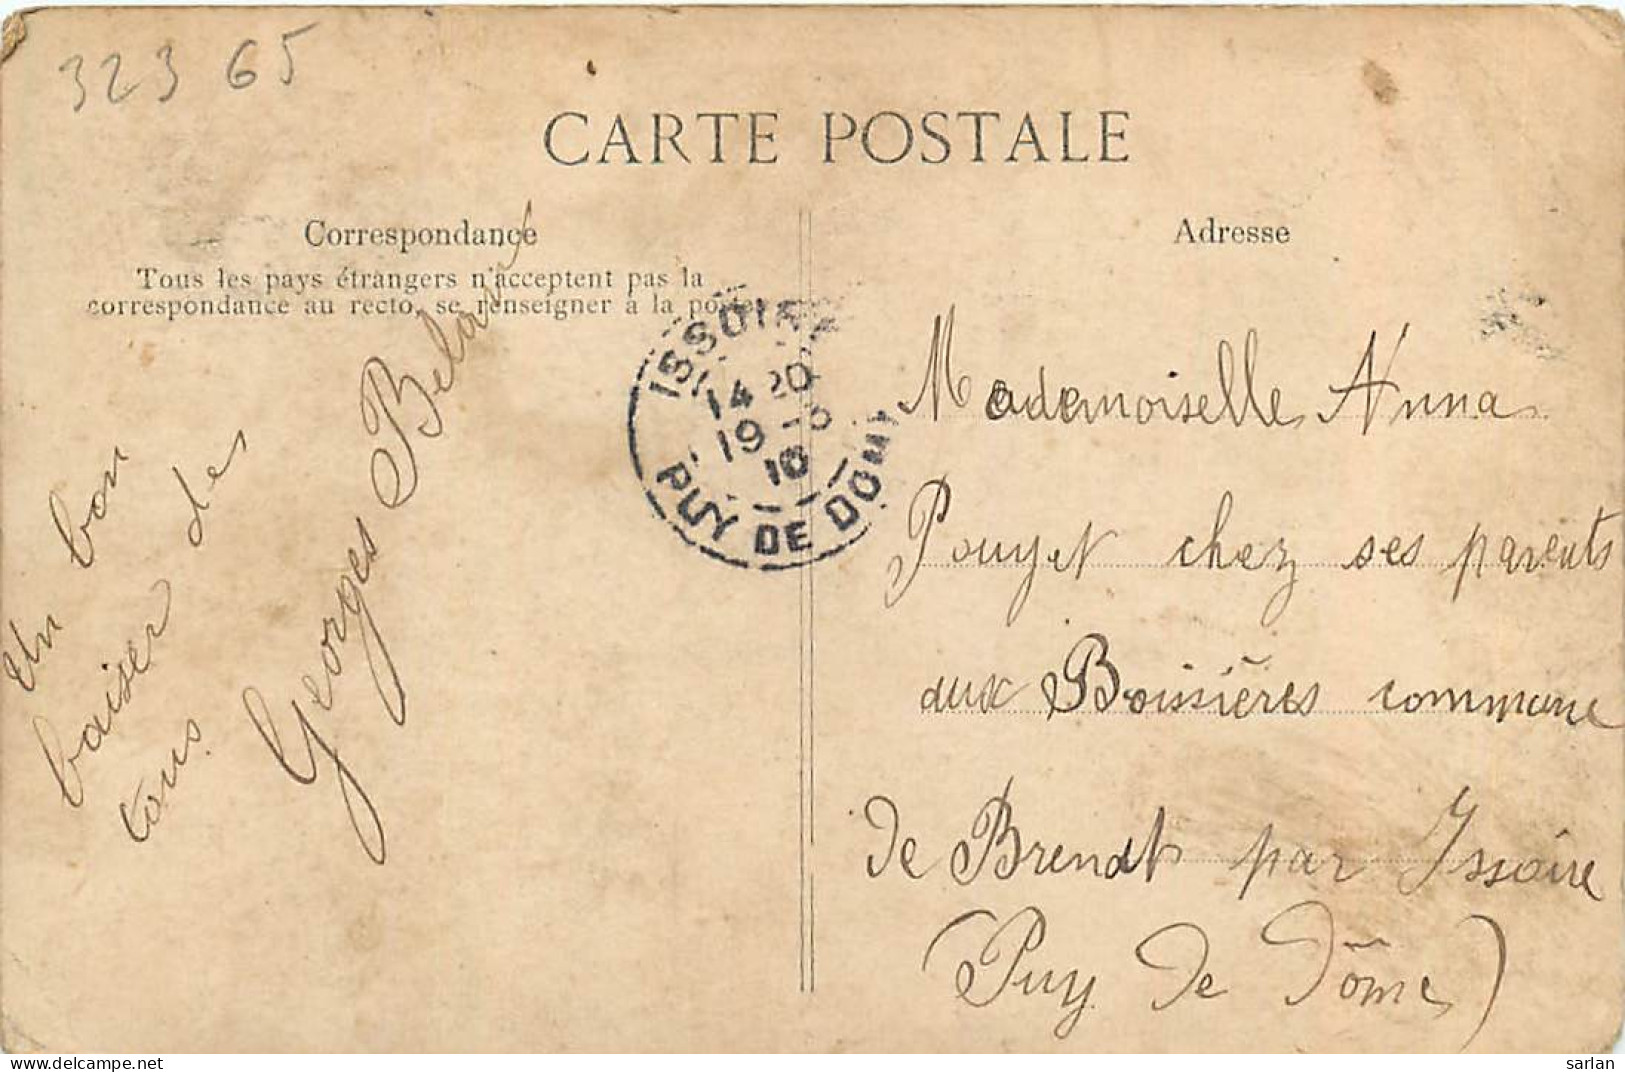 32365
CARTE POSTALE
Correspondance
Tous les pays étrangers n'acceptent pas la
correspondance au recto, se renseigner à la poste
Adresse
ISSOIRE
14 20
19 -8
10
PUY DE DOME
Un bon
baiser des
tous.
Georges
Mademoiselle Anna
Pouyet chez ses parents
aux Boissières commune
de Brendt par Issoire
(Puy de Dôme)
sarlan